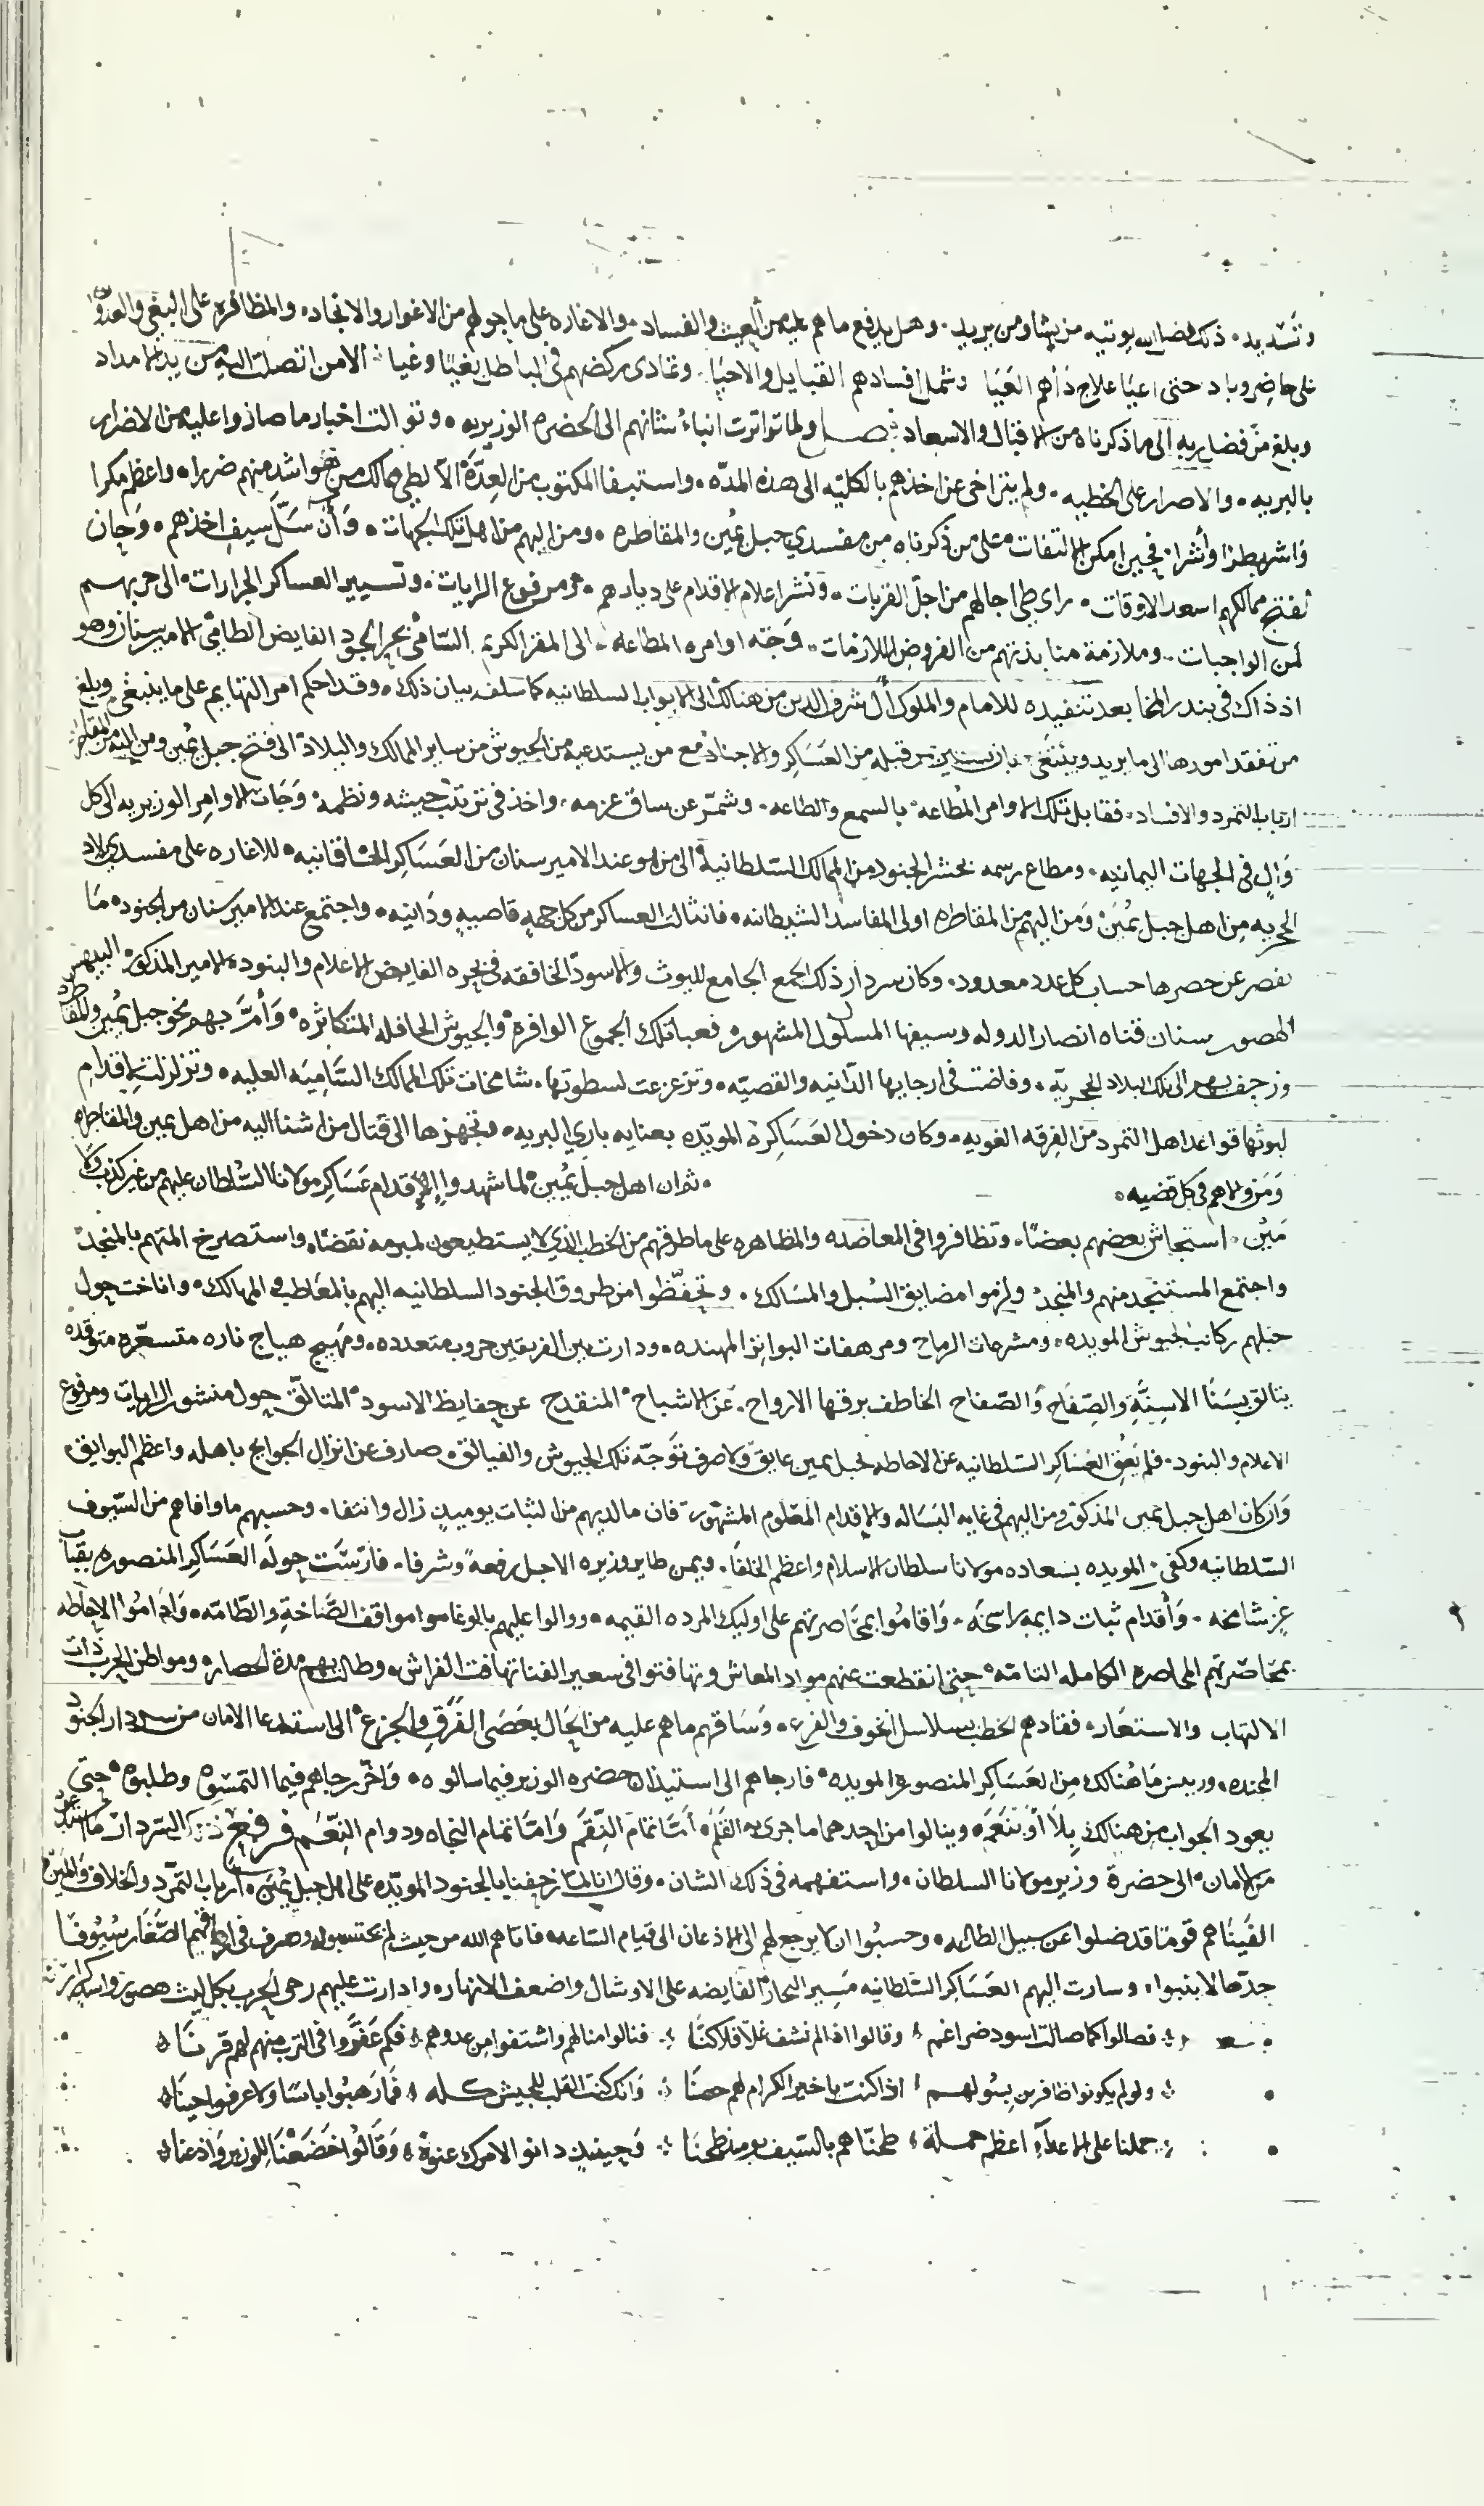 وتسديد ذلك فضل الله يوتيه من يشا ومن يريد وهل يدفع ما هم عليه من العيث والفساد والاغاره على ما حولهم من الاغوار والانجاد والمظافره على البغي والعدوان
على حاضر وباد حتى اعيا علاج دآهم العيا وشمل افسادهم القبايل والاحيا وتمادى ركضهم في الباطل بغيا وغيا الا من اتصلت اليه من يد الامداد
وبلغ من فضل ربه الى ما ذكرناه من الاقبال والاسعاد فصل ولما تواترت انباء شانهم الى الحضره الوزيريه وتوالت اخبار ما صاروا عليه من الاضرار
بالبريه والاصرار على الخطيه ولم يتراخى عن اخذهم بالكليه الى هذه المده واستبفا المكتوب من العدة الا لطي ممالك من هو اشد منهم ضررا واعظم مكرا
واشهر بطرا واشرا فحين امكن الالتفات على من ذكرناه من مفسدي جبل يمين والمقاطره ومن اليهم من اهل تلك الجهات وأن سل سيف اخذهم وحان
لفتح ممالكهم اسعد الاوقات راى طي اجالهم من اجل القربات ونشر اعلام الاقدام على ديارهم مرفوع الرايات وتسيير العساكر الجرارات الى حربهم
لمن الواجبات وملازمة منابذتهم من الفروض اللازمات وجه اوامره المطاعه الى المقر الكريم السامي بحر الجود الفايض الطامي الامير سنان وهو
اذ ذاك في بندر المخا بعد تنفيذه للامام والملوك أل شرف الدين من هنالك الى الابواب السلطانيه كما سلف بيان ذلك وقد احكم امر التهايم على ما ينبغي وبلغ
من تفقد امورها الى ما يريد ويبتغي بان يسير من قبله من العساكر والاجناد مع من يستدعيه من الجيوش من ساير الممالك والبلاد الى فتح جبل يمين ومن اليه من المقاطره
ارباب التمرد والافساد فقابل تلك الاوامر المطاعه بالسمع والطاعه وشمر عن ساق عزمه واخذ في ترتيب جيشه ونظمه وجات الاوامر الوزيريه الى كل
وال في الجهات اليمانيه ومطاع رسمه بحشر الجنود من الممالك السلطانية الى من هو عند الامير سنان من العساكر الخاقانيه للاغاره على مفسدي بلاد
الحجريه من اهل جبل يمين ومن اليهم من المقاطره اولى المفاسد الشيطانيه فانثالت العساكر من كل جهه قاصيه ودانيه واجتمع عند الامير سنان من الجنود ما
تقصر عن حصرها حساب كل عدد معدود وكان سردار ذلك الجمع الجامع لليوث والاسود الخافقه في نحره الفايض الاعلام والبنود الامير المذكور البيهس
الهصور سنان قناه انصار الدوله وسيفها المسلول المشهور فعبا تلك الجموع الوافرة والجيوش الحافله المتكاثره وأمر بهم نحو جبل يمين والمقاطره
وزحف بهم الى تلك البلاد الحجرية وفاضت في ارجايها الدانيه والقصيه وتزعزعت لسطوتها شامخات تلك الممالك الساميه العليه وتزلزلت لاقدام
ليوثها قواعد اهل التمرد من الفرقه الغويه وكان دخول العساكر المويده بعنايه باري البريه وتجهزها الى قتال من اشنا اليه من اهل يمين والمقاطره
ومن والاهم في كل قضيه ثم ان اهل جبل يمين لما شهدوا الاقدام عساكر مولانا السلطان عليهم من غير كذب ولا
مين استجاش بعضهم بعضا وتظافروا في المعاضده والمظاهره على ما طرقهم من الخطب الذي لا يستطيعون لمبرمه نقضا واستصرخ المتهم بالمنجد
واجتمع المستنجد منهم والمنجد ولزموا مضايق السبل والمسالك وتحفظوا من طروق الجنود السلطانيه اليهم بالمعاطب والمهالك واناخت حول
جبلهم ركائب الجيوش المويده ومشرعات الرماح ومرهفات البواتر المهنده ودارت بين الفريقين حروب متعدده ومهيج هياج ناره متسعره متوقده
يتالق بسنا الاسنة والصفاح والصفاح الخاطف برقها الارواح عن الاشباح المنقدح عن حفايظ الاسود المتالق حول منشور الرايات ومرفوع
الاعلام والبنود فلم يعق العساكر السلطانيه عن الاحاطه بجبل يمين عايق ولا صرف توجه تلك الجيوش والفيالق صارف عن انزال الجوايح باهله واعظم البوايق
وان كان اهل جبل يمين المذكور ومن اليهم في غايه البساله والاقدام المعلوم المشهور فان ما لديهم من الثبات يوميذ زال وانتفا وحسبهم ما وافاهم من السيوف
السلطانيه وكفى المويده بسعاده مولانا سلطان الاسلام واعظم الخلفا ويمن طاير وزيره الاجل رفعة وشرفا فارست حوله العساكر المنصوره بقباب
عز شامخه وأقدام ثبات دايمه راسخه واقاموا بمحاصرتهم على اوليك المرده القيمه ووالوا عليهم بالوغا مواقف الصاخة والطامه وادامو الاحاطه
بمحاصرتهم المحاصره الكامله التامه حتى انقطعت عنهم مواد المعاش وتهافتوا في سعير الفنا تهافت الفراش وطالت بهم مدة الحصار ومواطن الحرب ذات
الالتهاب والاستعار فقادهم الخطب بسلاسل الخوف والفزع وساقهم ما هم عليه من الحال بعصى الفرق والجزع الى استدعا الامان من سردار الجنود
المجنده وريس ما هنالك من العساكر المنصورة المويده فارجاهم الى استيذان حضره الوزير فيما سالوه واخر رجاهم فيما التمسوه وطلبوه حتى
يعود الجواب من هنالك بلا او نعم وينالوا من احدهما ما جرى به القلم أما تمام النقم واما تمام النجاه ودوام النعم فرفع ذكر السردار ما استدعوه
من الامان الى حضرة وزير مولانا السلطان واستفهمه في ذلك الشان وقال انا لما زحفنا بالجنود المويده على اهل جبل يمين ارباب التمرد والخلاف والمين
الفيناهم قوما قد ضلوا عن سبيل الطاعه وحسبوا ان لا يرجع لهم الى الاذعان الى قيام الساعه فاتاهم الله من حيث لم يحتسبوا وصرف في اعناقهم الصغار سيوفا
حدها لا ينبوا وسارت اليهم العساكر السلطانيه مسير البحار الفايضه على الاوشال واضعف الانهار وادارت عليهم رحى الحرب بكل ليث هصور
فصالوا كما صالت اسود ضراغم وقالوا اذا لم نشف غلا فلا كنا فنالوا منالهم واشتفوا من عدوهم فكم عفروا في الترب منهم لهم قرنا
ولو لم يكونوا ظافرين بسولهم اذا كنت يا خير الكرام لهم حصنا وانك كنت القلب للجيش كله فما رهبوا باسا ولا عرفوا جبنا
حملنا على الاعدآء اعظم حملة طحناهم بالسيف يوميذ طحنا وحينيذ دانوا لامرك عنوة وقالوا خضعنا للوزير واذعنا